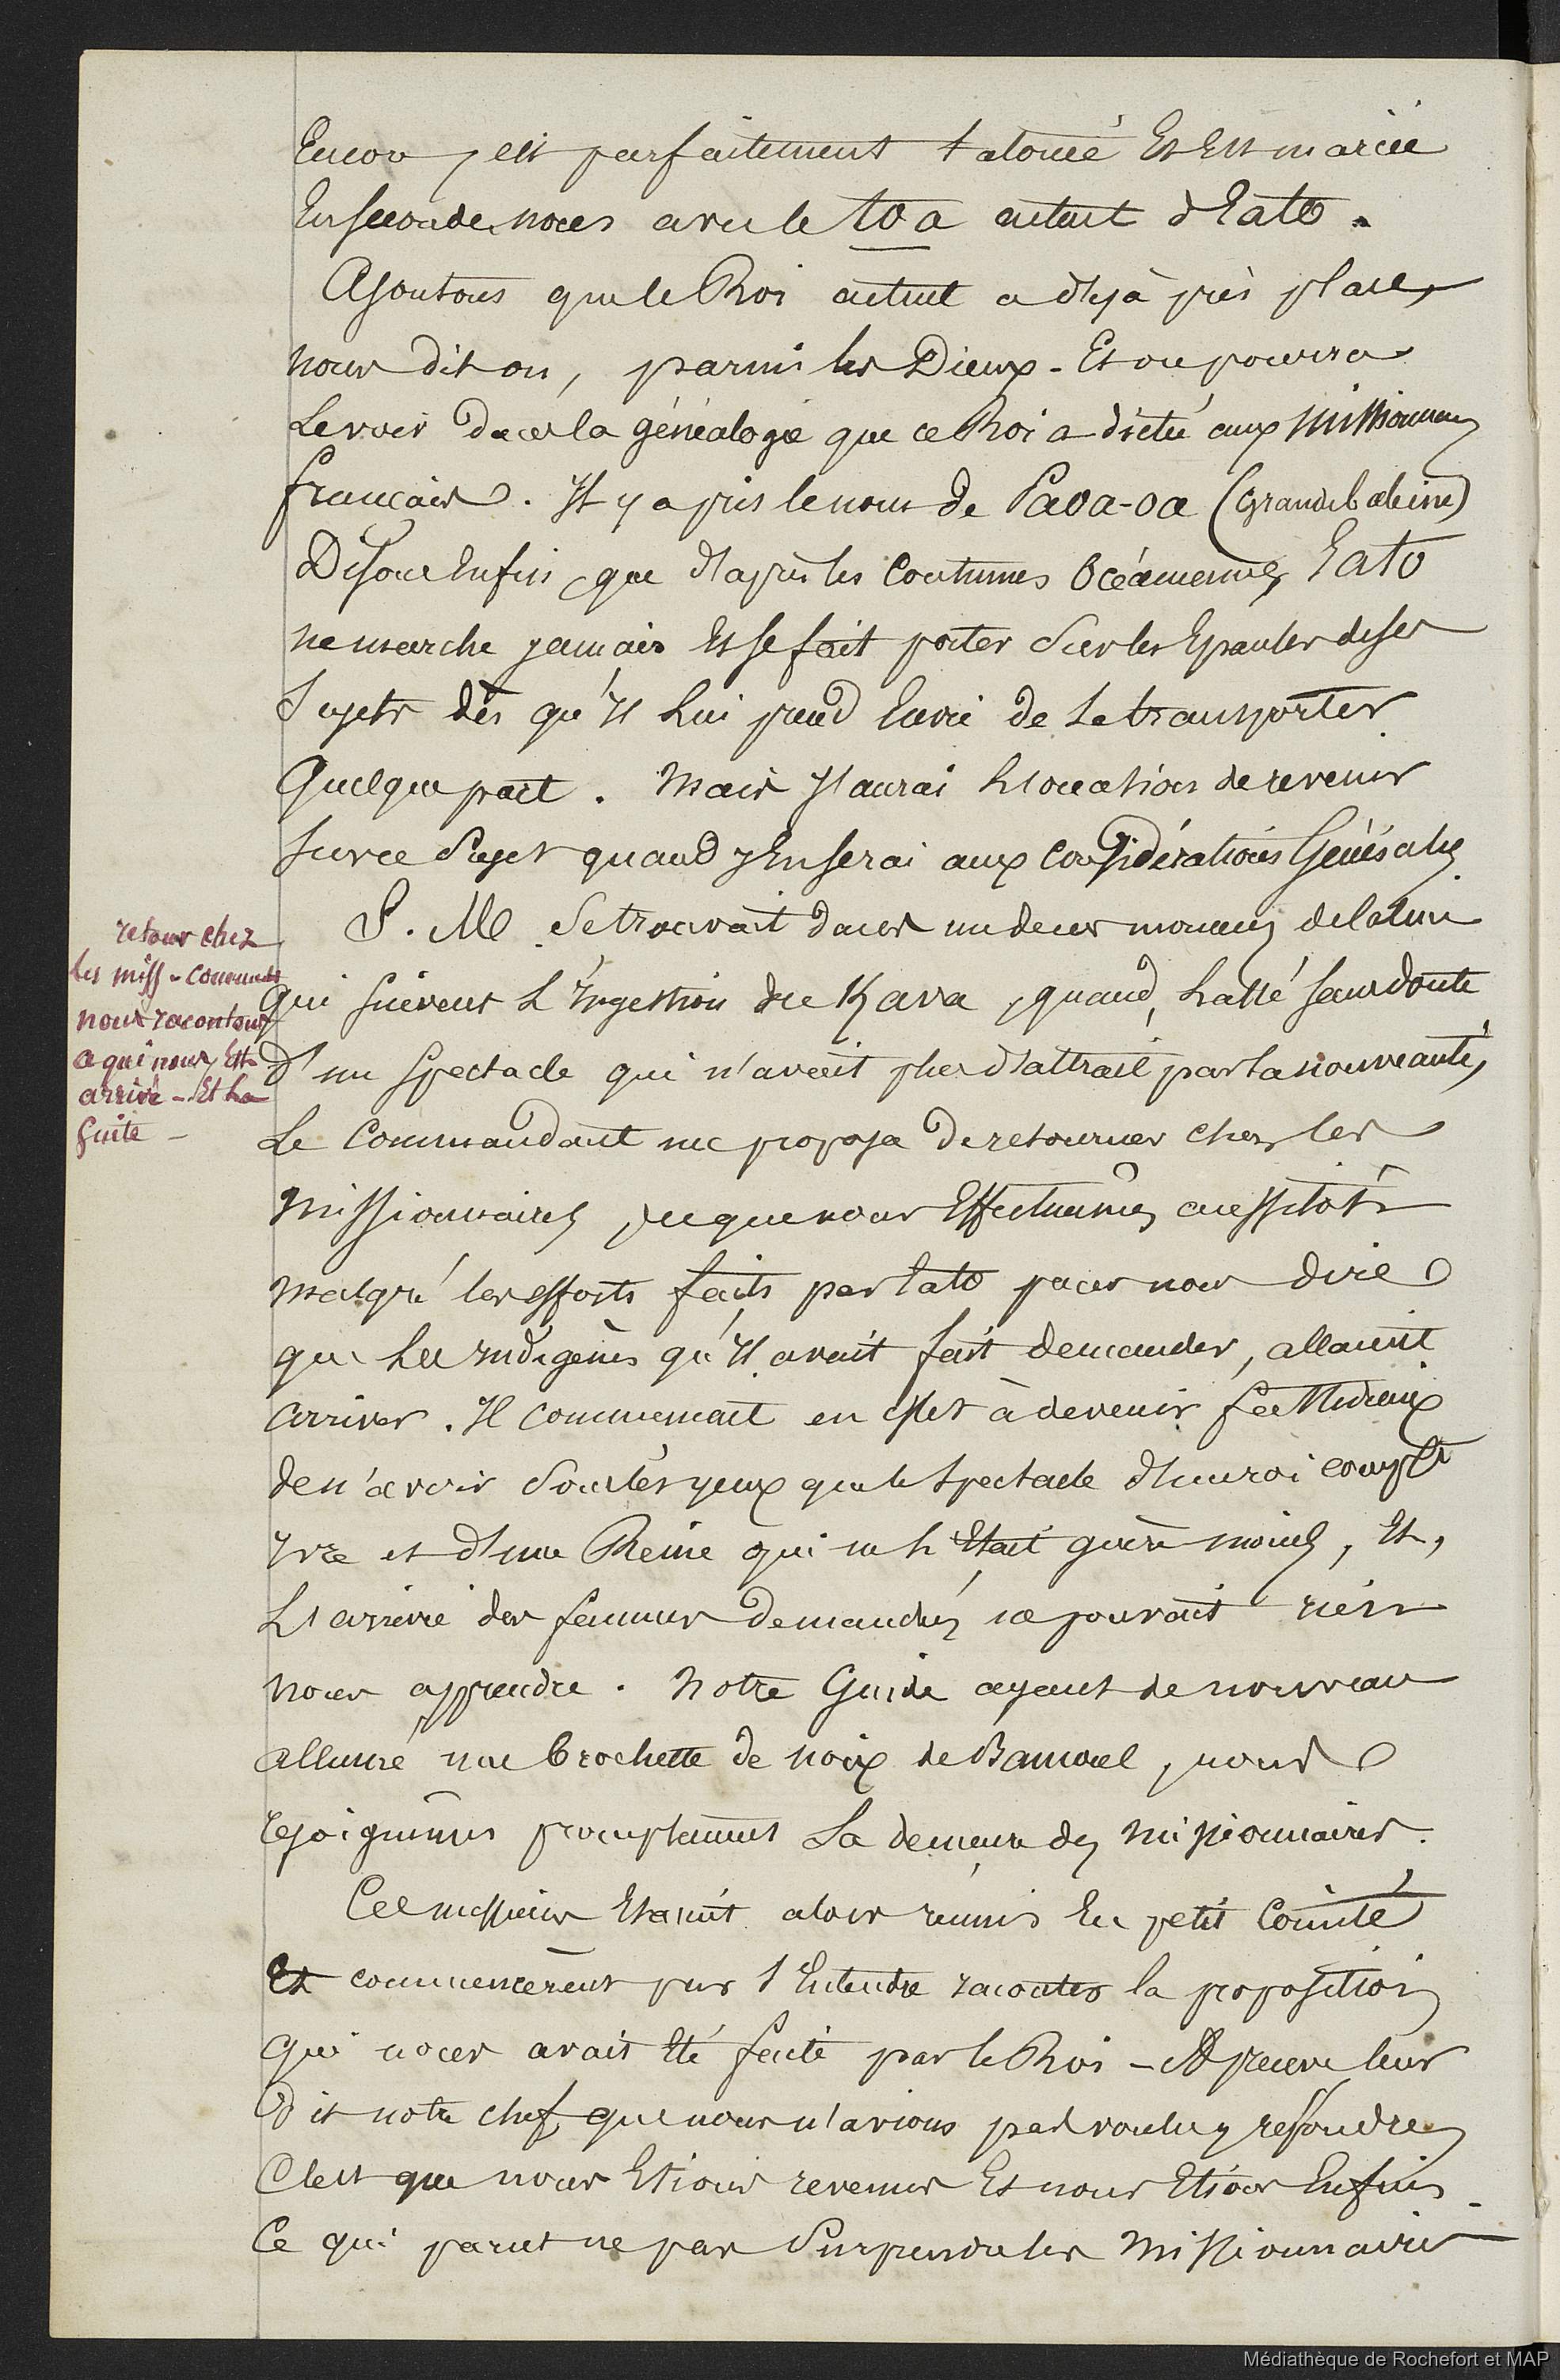 Encor, est parfaitement tatoué Et Est mariée
En seconde noces avec le toa actuel d'Eato.
Ajoutons que le Roi actuel a déjà pris place,
nous dit on, parmi les Dieux. Et on pourra
le voir dans la généalogie que ce Roi a dicté aux Missionnaires
français. Il y a pris le nom de Paoa-oa (Grande baleine)
Disons Enfin, que d'après les Coutumes Océaniennes, Eato
ne marche jamais Et se fait porter sur les Epaules de ses
sujets dès qu'Il lui prend Envie de se transporter
Quelque part. Mais J'aurai l'occasion de revenir
sur ce sujet quand J'En serai aux Considérations Générales.
S. M. se trouvait dans un de ces moments de calme
qui suivent l'Ingestion du Kava, quand, lassé sans doute
d'un spectacle qui n'avait plus d'attrait par sa nouveauté,
Le Commandant me proposa de retourner chez les
missionnaires, ce que nous Effectuâmes aussitôt
malgré les efforts faits par Eato pour nous dire
que les Indigènes qu'Il avait fait demander, allaient
arriver. Il commençait en effet à devenir fastidieux
de n'avoir sous les yeux que le spectacle d'un roi compt
Ivre et d'une Reine qui ne l'Etait guère moins, Et,
L'arrivée des femmes demandées ne pouvait rien
nous apprendre. Notre Guide ayant de nouveau
allumé une brochette de noix de Bancoul, nous
rejoignîmes promptement la demeure des missionnaires.
Ces messieurs Etaient alors réunis En petit Comité
Et commencèrent par s'Entendre raconter la proposition
qui nous avait Eté faite par le Roi - La preuve leur
dit notre chef, que nous n'avions pas voulu y résoudre,
C'est que nous Etions revenus Et nous Etions Enfuis.
Ce qui parut ne pas surprendre les missionnaires
retour chez
les miss - Command
nous racontons
ce qui nous Est
arrivé - Et la
suite -
Médiathèque de Rochefort et MAP